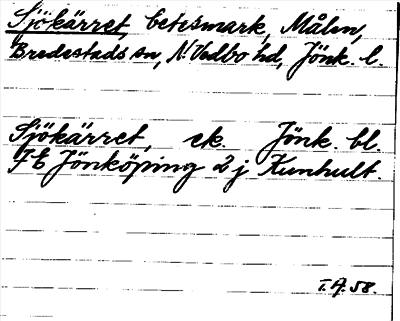 Sjökärret, betesmark, Målen,
Bredestads sn, N. Vedbo hd, Jönk. l.
Sjökärret, ek. Jönk. bl.
7E Jönköping 2j Kunhult.
T.A. 58.